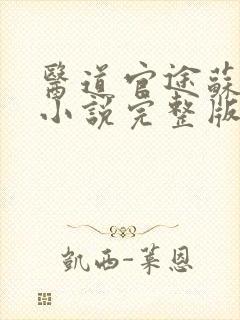 醫道官途蘇
小說完整版
凱西-萊恩